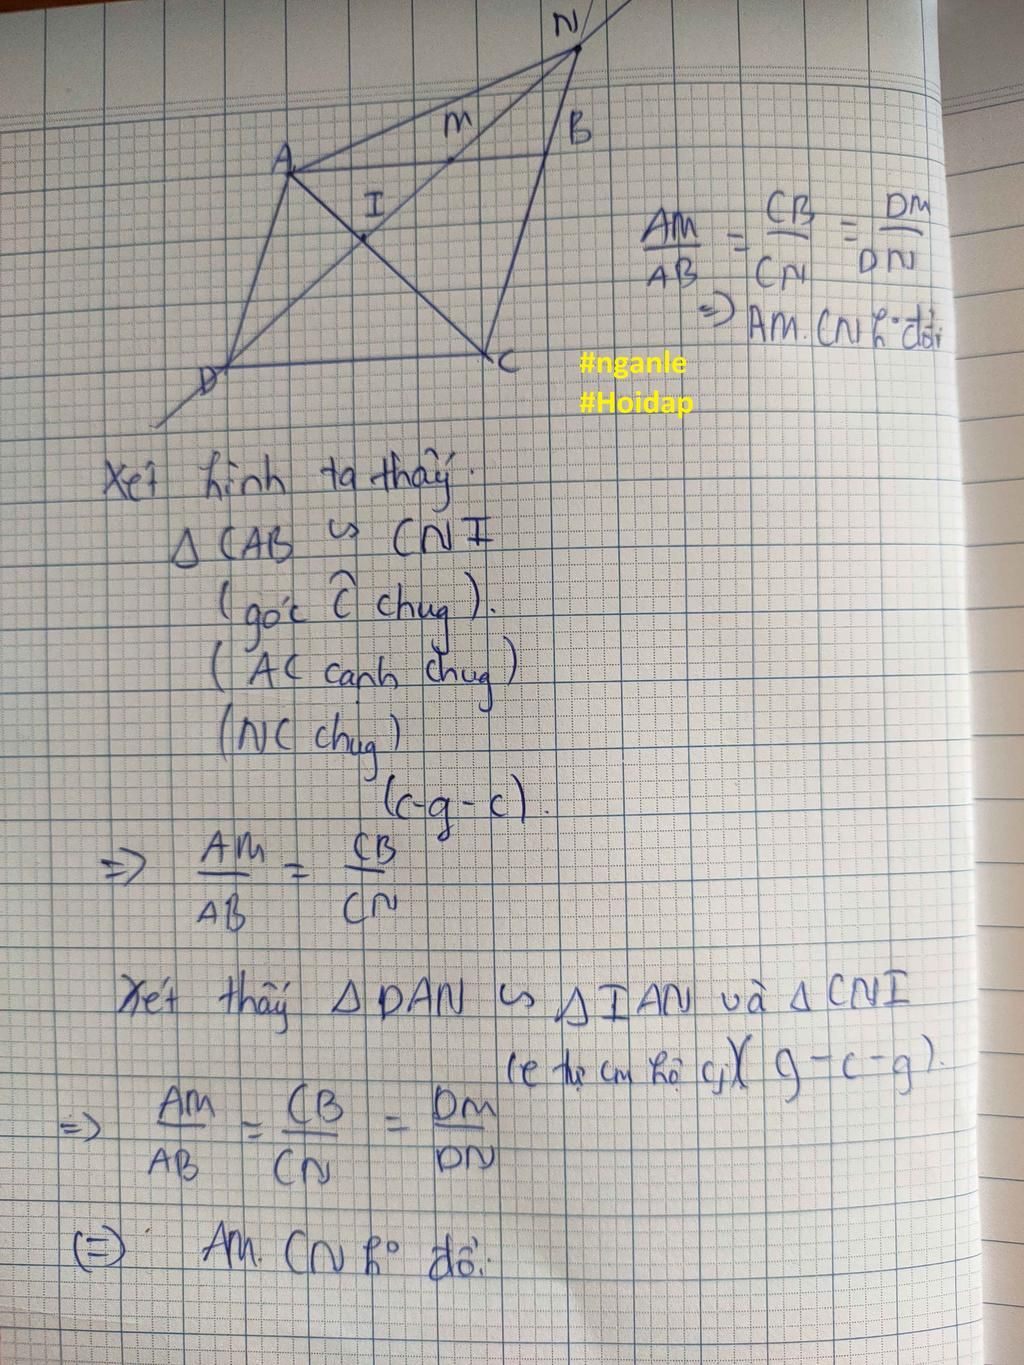 N
M
B
A
I
D
C
AM/AB = CB/CN = DM/DN
=> AM.CN k° đổi
#nganle
#Hoidap
Xét hình ta thấy.
Δ CAB ∽ CNI
(góc Ĉ chug).
(AC cạnh chug)
(NC chug)
(c-g-c).
=> AM/AB = CB/CN
Xét thấy Δ DAN ∽ Δ IAN và Δ CNI
(e tự cm hộ cj) (g-c-g).
=> AM/AB = CB/CN = DM/DN
(=) AM.CN k° đổi.